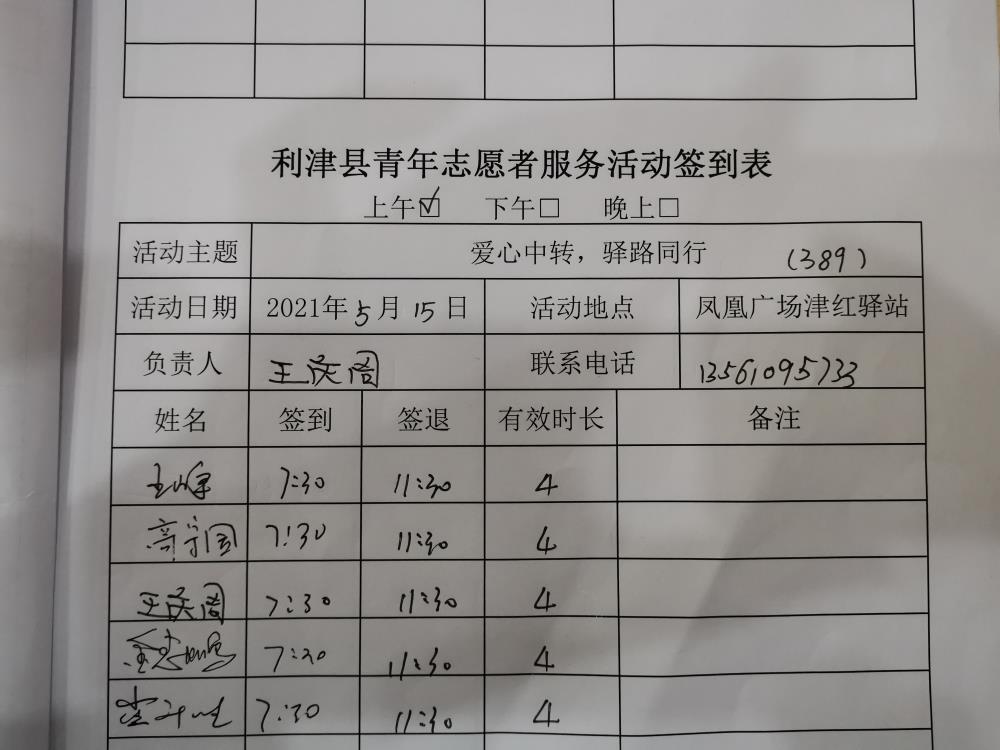 利津县青年志愿者服务活动签到表
上午☑ 下午□ 晚上□
活动主题 爱心中转，驿路同行 (389)
活动日期 2021年5月15日 活动地点 凤凰广场津红驿站
负责人 王庆阁 联系电话 13561095733
姓名 签到 签退 有效时长 备注
7:30 11:30 4
高守国 7:30 11:30 4
王庆阁 7:30 11:30 4
7:30 11:30 4
7:30 11:30 4